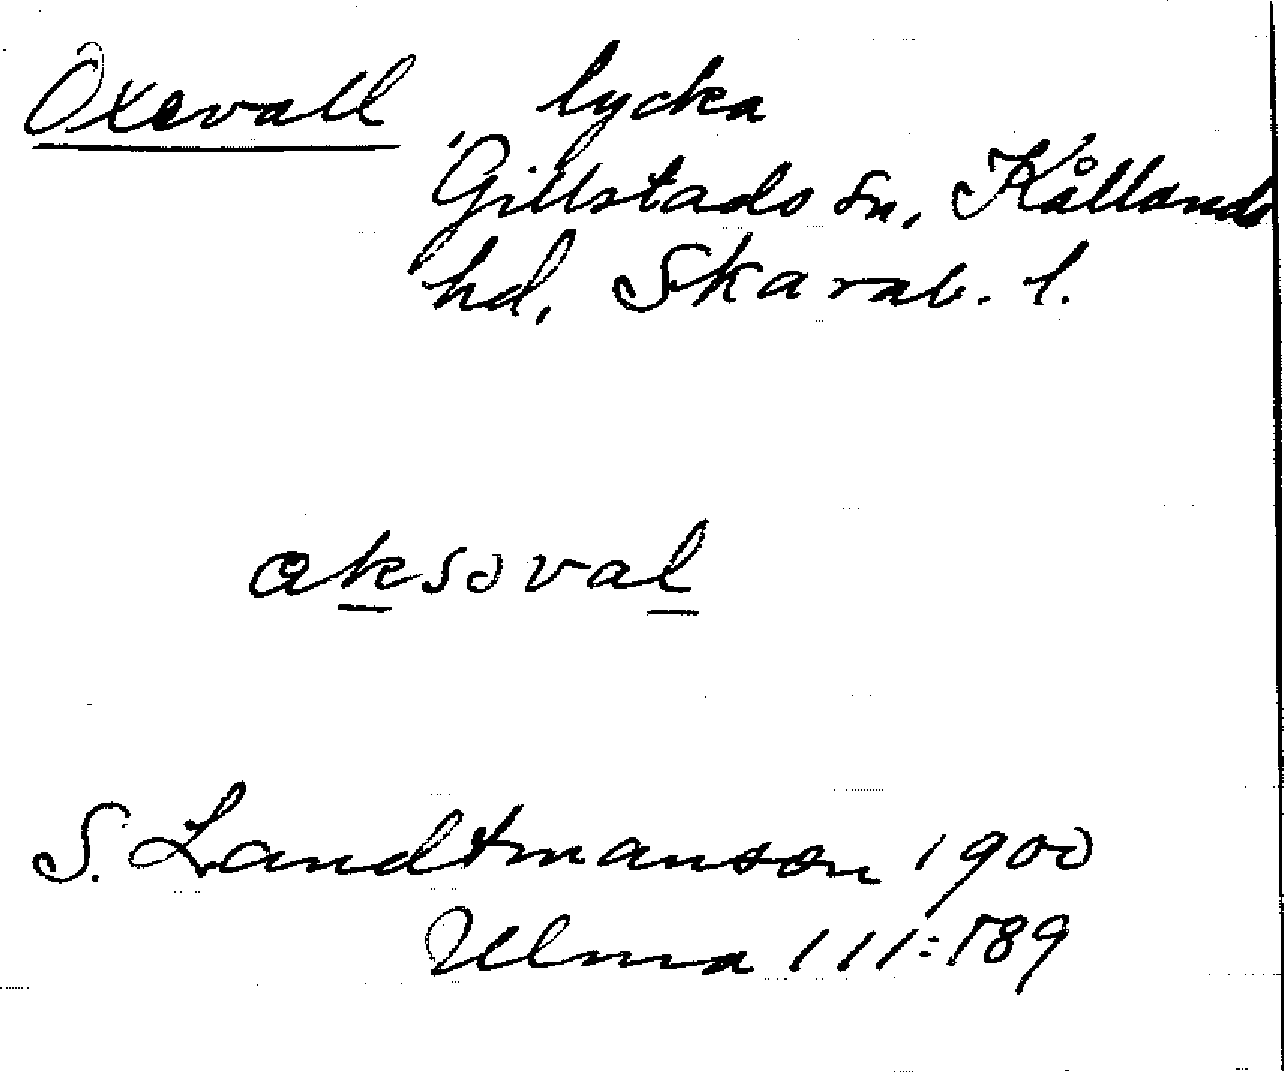 Oxevall lycka
Gillstads sn, Kållands
hd, Skarab. l.
aksoval
S. Landtmanson 1900
Ulma 111:189